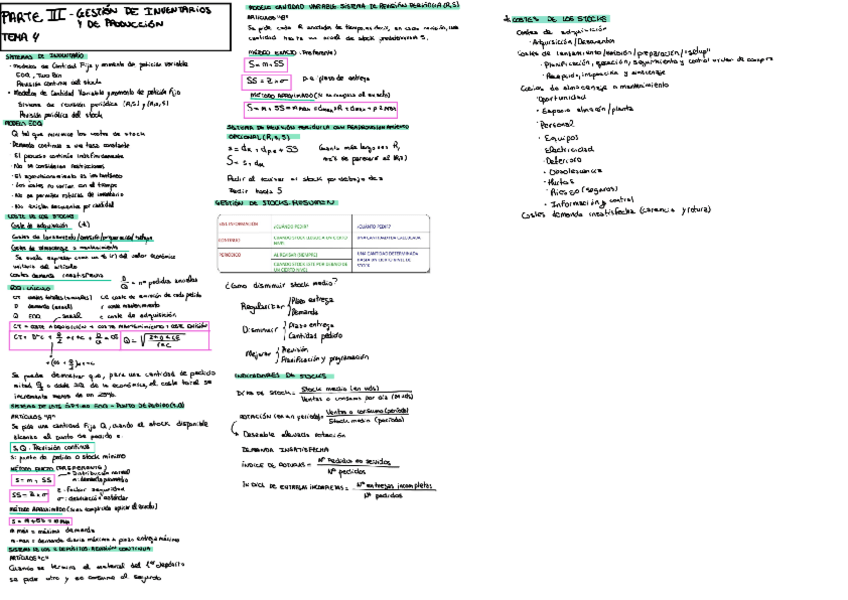 PARTE III - GESTIÓN DE INVENTARIOS
Y DE PRODUCCIÓN
TEMA 4
SISTEMAS DE INVENTARIO
· Modelos de Cantidad Fija y momento de petición variable
EOQ, Two Bin
Revisión continua del stock
· Modelos de Cantidad Variable y momento de petición Fijo
Sistema de revisión periódica (R,S) y (R,s,S)
Revisión periódica del stock
MODELO EOQ
Q tal que minimice los costes de stock
· Demanda continua a una tasa constante
· El proceso continúa indefinidamente
· No se consideran restricciones
· El aprovisionamiento es instantáneo
· Los costes no varían con el tiempo
· No se permiten roturas de inventario
· No existen descuentos por cantidad
COSTE DE LOS STOCKS
Coste de adquisición
Costes de lanzamiento/emisión/preparación/setup
Costes de almacenaje o mantenimiento
Se suele expresar como un % (r) del valor económico
unitario del artículo
Costes demanda insatisfecha
D/Q = nº pedidos anuales
EOQ: CÁLCULO
CT costes totales (anuales) CE coste de emisión de cada pedido
D demanda (anual) r coste mantenimiento
Q EOQ c coste de adquisición
CT = COSTE ADQUISICIÓN + COSTE MANTENIMIENTO + COSTE EMISIÓN
Se puede demostrar que, para una cantidad de pedido
mitad Q/2 o doble 2Q de la económica, el coste total se
incrementa menos de un 25%
ARTÍCULOS "A"
Se pide una cantidad fija Q, cuando el stock disponible
alcanza el punto de pedido s.
s, Q - Revisión continua
s: punto de pedido o stock mínimo
MÉTODO EXACTO (PREFERENTE)
Distribución normal
s = m + SS
SS = z × σ
z: Factor seguridad
σ: desviación estándar
m max = máxima demanda
m max = demanda diaria máxima × plazo entrega máximo
SISTEMA DE LOS 2 DEPÓSITOS - REVISIÓN CONTINUA
ARTÍCULOS "C"
Cuando se termina el material del 1er depósito
se pide otro y se consume el segundo
MODELO CANTIDAD VARIABLE SISTEMA DE REVISIÓN PERIÓDICA (R,S)
ARTÍCULOS "B"
MÉTODO EXACTO (Preferente)
S = m + SS
SS = z × σ
plazo de entrega
SISTEMA DE REVISIÓN PERIÓDICA CON REAPROVISIONAMIENTO
OPCIONAL (R, s, S)
Cuanto más largo sea R,
más se parecerá al (R,S)
Pedir al revisar si stock por debajo de s
Pedir hasta S
GESTIÓN DE STOCKS - RESUMEN
¿CUÁNDO PEDIR?
¿CUÁNTO PEDIR?
PERIÓDICO
AL REVISAR (SIEMPRE)
¿Cómo disminuir stock medio?
Regularizar { Plazo entrega
Demanda
Disminuir { Plazo entrega
Cantidad pedido
Mejorar { Previsión
Planificación y programación
INDICADORES DE STOCKS
DÍAS DE STOCK = Stock medio (en uds)
Ventas o consumo por día
Ventas o consumo (período)
Stock medio (período)
Deseable elevada rotación
DEMANDA INSATISFECHA
ÍNDICE DE ROTURAS = Nº Pedidos no servidos
Nº pedidos
ÍNDICE DE ENTREGAS INCOMPLETAS = Nº entregas incompletas
Nº pedidos
COSTES DE LOS STOCKS
Costes de adquisición
· Adquisición / Descuentos
Costes de lanzamiento/emisión/preparación/"setup"
· Planificación, ejecución, seguimiento y control orden de compra
· Recepción, inspección y almacenaje
Costes de almacenaje o mantenimiento
· Oportunidad
· Espacio almacén/planta
· Personal
· Equipos
· Electricidad
· Deterioro
· Obsolescencia
· Hurtos
· Riesgo (seguros)
· Información y control
Costes demanda insatisfecha (carencia y rotura)